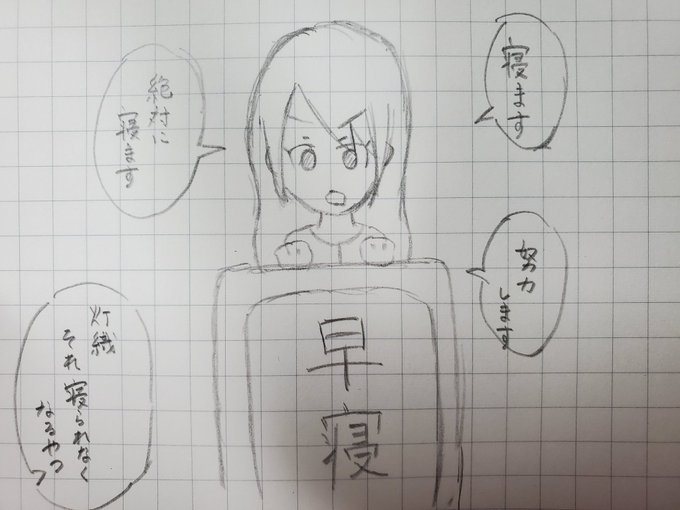 寝ます
努力
します
絶対に
寝ます
灯織
それ寝られなく
なるやつ
早寝